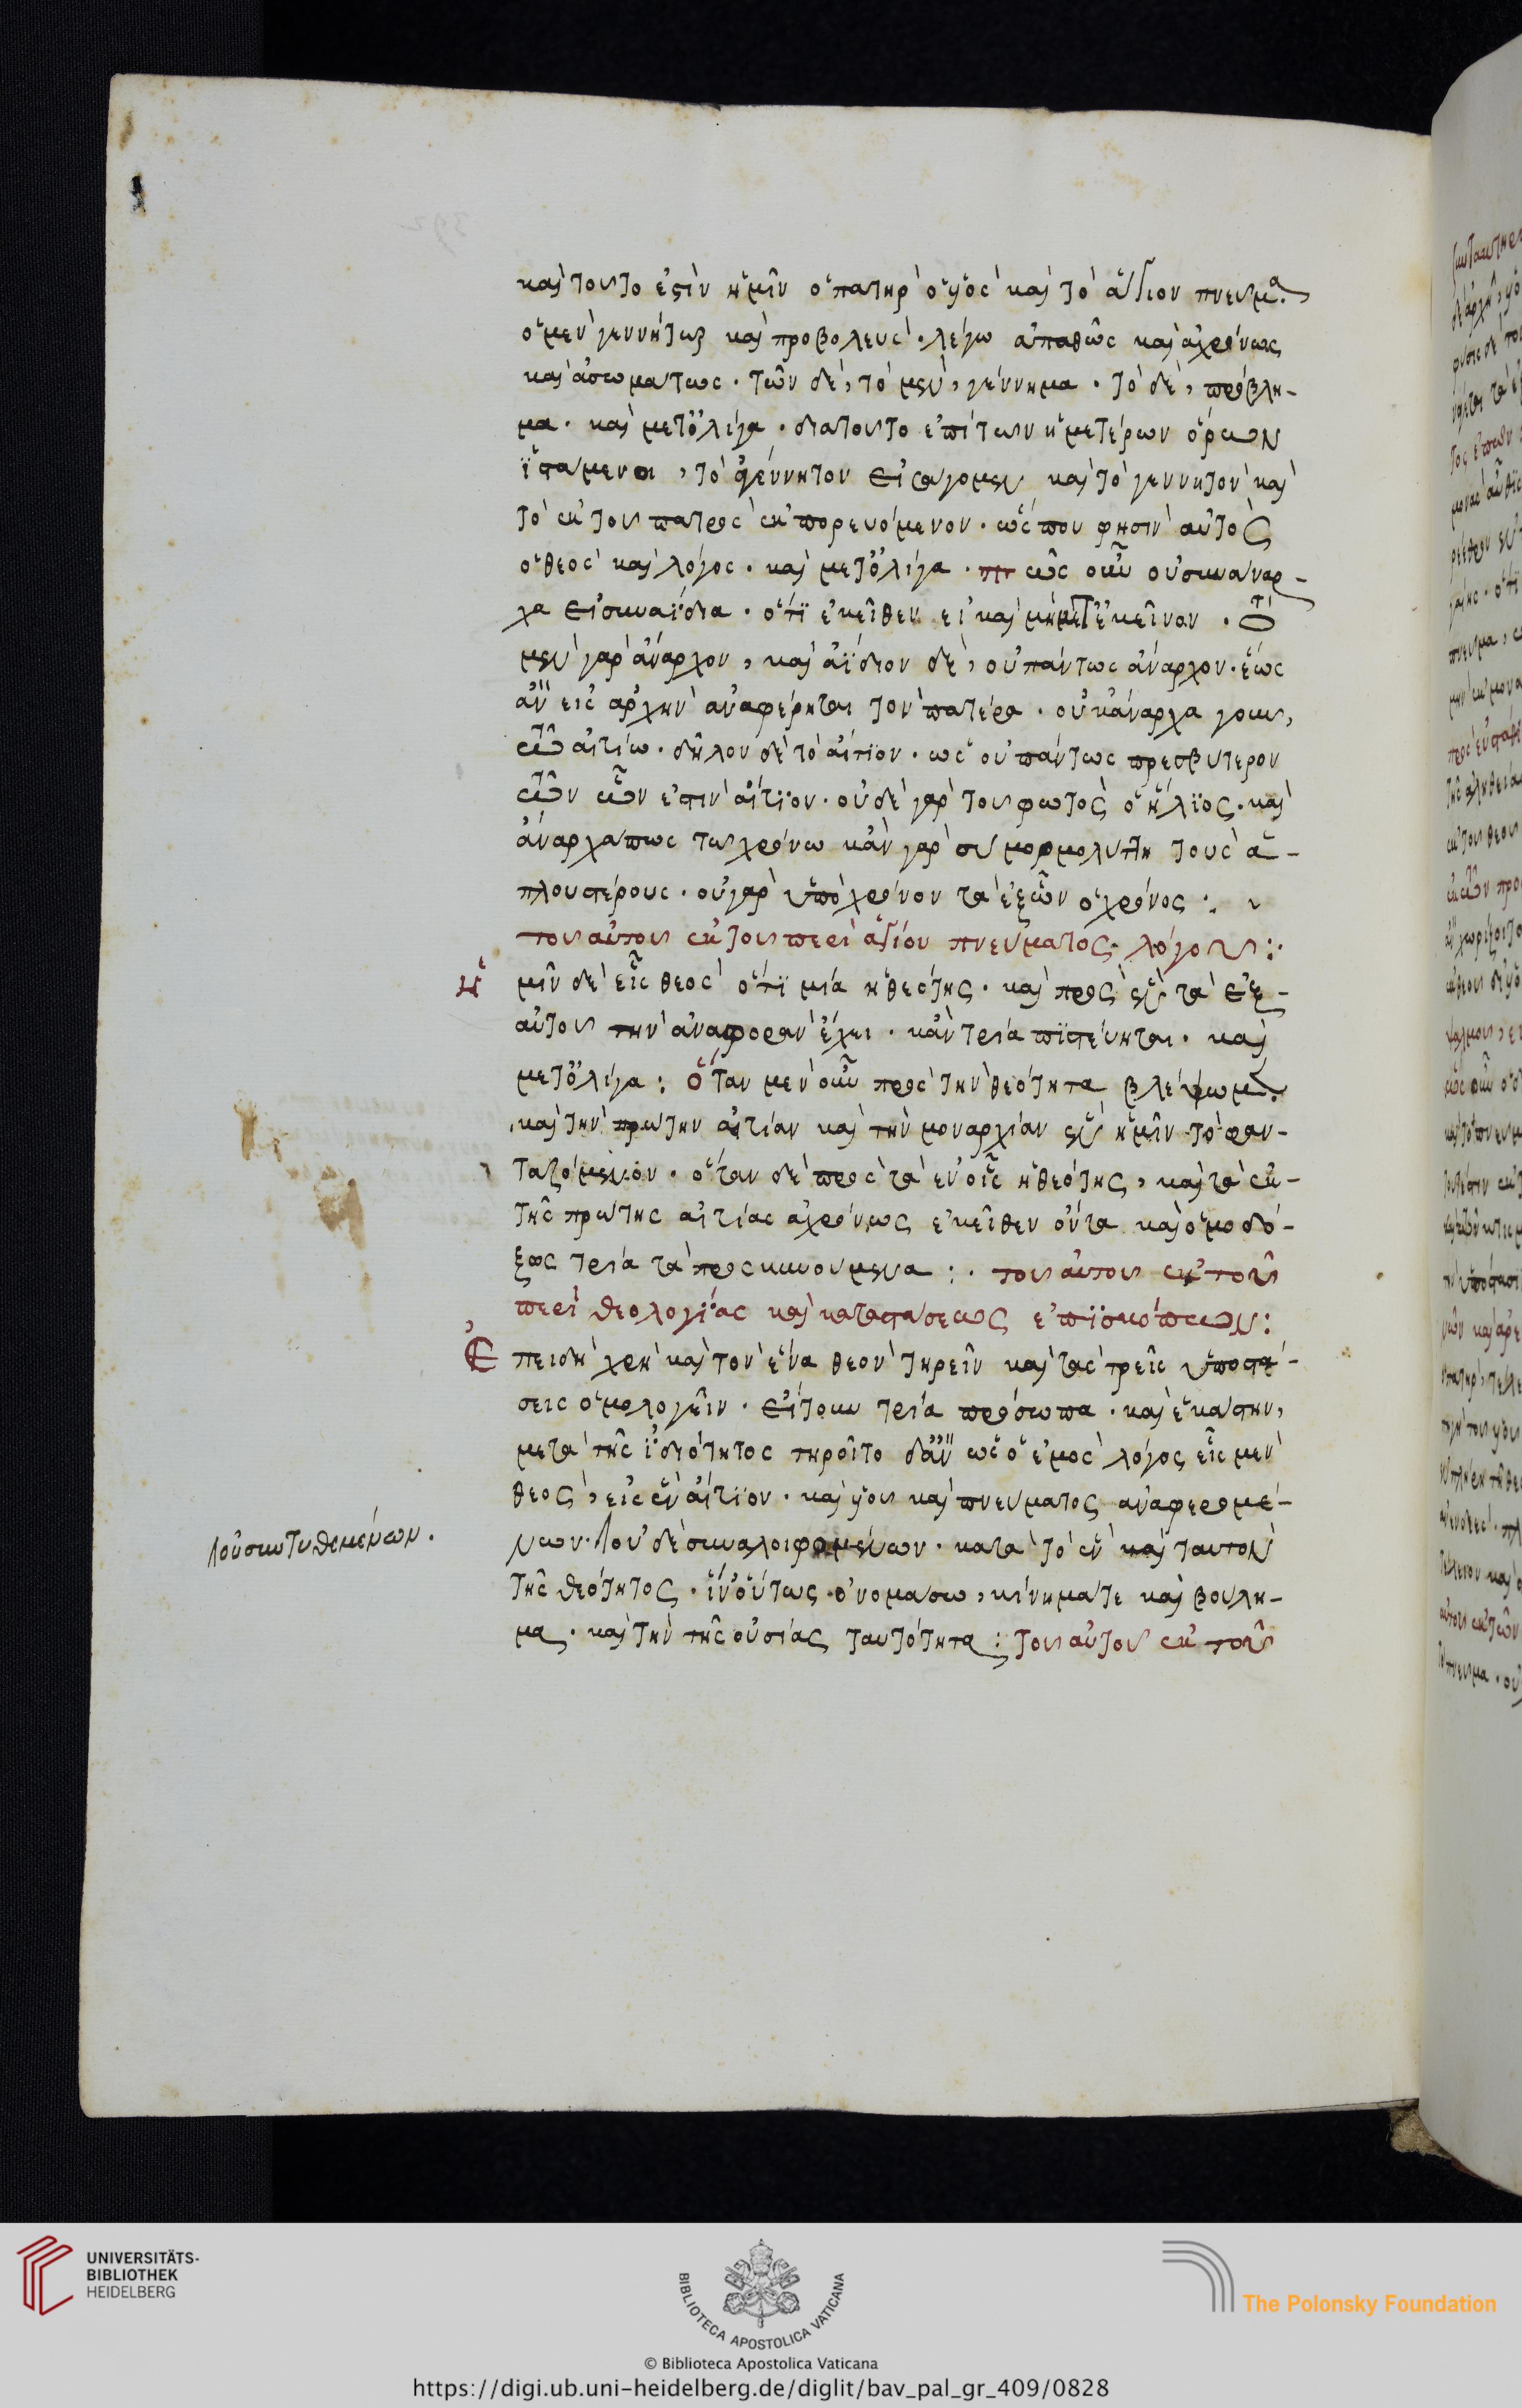 καὶ τοῦτο ἐστὶν ἡμῖν ὁ πατὴρ ὁ υἱὸς καὶ τὸ ἅγιον πνεῦμα.
ὁ μὲν γεννήτωρ καὶ προβολεὺς· λέγω ἀπαθῶς καὶ ἀχρόνως
καὶ ἀσωμάτως. τῶν δὲ, τὸ μὲν, γέννημα. τὸ δὲ, πρόβλη-
μα. καὶ μετ' ὀλίγα. διατοῦτο ἐπὶ τῶν ἡμετέρων ὅρων
ἱστάμενοι, τὸ ἀγέννητον εἰσάγομεν καὶ τὸ γεννητὸν καὶ
τὸ ἐκ τοῦ πατρὸς ἐκπορευόμενον. ὥς που φησὶν αὐτὸς
ὁ θεὸς καὶ λόγος. καὶ μετ' ὀλίγα. πῶς οὖν οὐ συνάναρ-
χα εἰ συναΐδια. ὅτι ἐκεῖθεν εἰ καὶ μὴ μετ' ἐκεῖνον. τὸ
μὲν γὰρ ἄναρχον, καὶ ἀΐδιον δὲ, οὐ πάντως ἄναρχον. ἕως
ἂν εἰς ἀρχὴν ἀναφέρηται τὸν πατέρα. οὐκ ἄναρχα γοῦν,
τῶ αἰτίω. δῆλον δὲ τὸ αἴτιον. ὡς οὐ πάντως πρεσβύτερον
τῶν ὧν ἐστὶν αἴτιον. οὐδὲ γὰρ τοῦ φωτὸς ὁ ἥλιος. καὶ
ἄναρχά πως τῶ χρόνω κἂν γὰρ σὺ μορμολύττη τοὺς ἁ-
πλουστέρους. οὐ γὰρ ὑπὸ χρόνον τὰ ἐξ ὧν ὁ χρόνος:
τοῦ αὐτοῦ ἐκ τοῦ περὶ ἁγίου πνεύματος λόγου:
ἡμῖν δὲ εἷς θεὸς ὅτι μία ἡ θεότης. καὶ πρὸς ἓν τὰ ἐξ-
αὐτοῦ τὴν ἀναφορὰν ἔχει. κἂν τρία πιστεύηται. καὶ
μετ' ὀλίγα: ὅταν μὲν οὖν πρὸς τὴν θεότητα βλέψωμεν
καὶ τὴν πρώτην αἰτίαν καὶ τὴν μοναρχίαν ἓν ἡμῖν τὸ φαν-
ταζόμενον. ὅταν δὲ πρὸς τὰ ἐν οἷς ἡ θεότης, καὶ τὰ ἐκ-
τῆς πρώτης αἰτίας ἀχρόνως ἐκεῖθεν ὄντα καὶ ὁμοδό-
ξως τρία τὰ προσκυνούμενα: τοῦ αὐτοῦ ἐκ τοῦ
περὶ θεολογίας καὶ καταστάσεως ἐπισκόπων:
Ἐπειδὴ χρὴ καὶ τὸν ἕνα θεὸν τηρεῖν καὶ τὰς τρεῖς ὑποστά-
σεις ὁμολογεῖν. εἴτουν τρία πρόσωπα. καὶ ἑκάστην,
μετὰ τῆς ἰδιότητος τηροῖτο δ' ἂν ὡς ὁ ἐμὸς λόγος εἷς μὲν
θεὸς, εἰς ἓν αἴτιον. καὶ υἱοῦ καὶ πνεύματος ἀναφερομέ-
νων. οὐ δὲ συναλοιφομένων. κατὰ τὸ ἓν καὶ ταυτὸν
τῆς θεότητος. ἵν' οὕτως ὀνομάσω, κίνημά τε καὶ βούλη-
μα. καὶ τὴν τῆς οὐσίας ταυτότητα: τοῦ αὐτοῦ ἐκ τοῦ
οὐ συντιθεμένων.
UNIVERSITÄTS-
BIBLIOTHEK
HEIDELBERG
BIBLIOTECA APOSTOLICA VATICANA
The Polonsky Foundation
© Biblioteca Apostolica Vaticana
https://digi.ub.uni-heidelberg.de/diglit/bav_pal_gr_409/0828